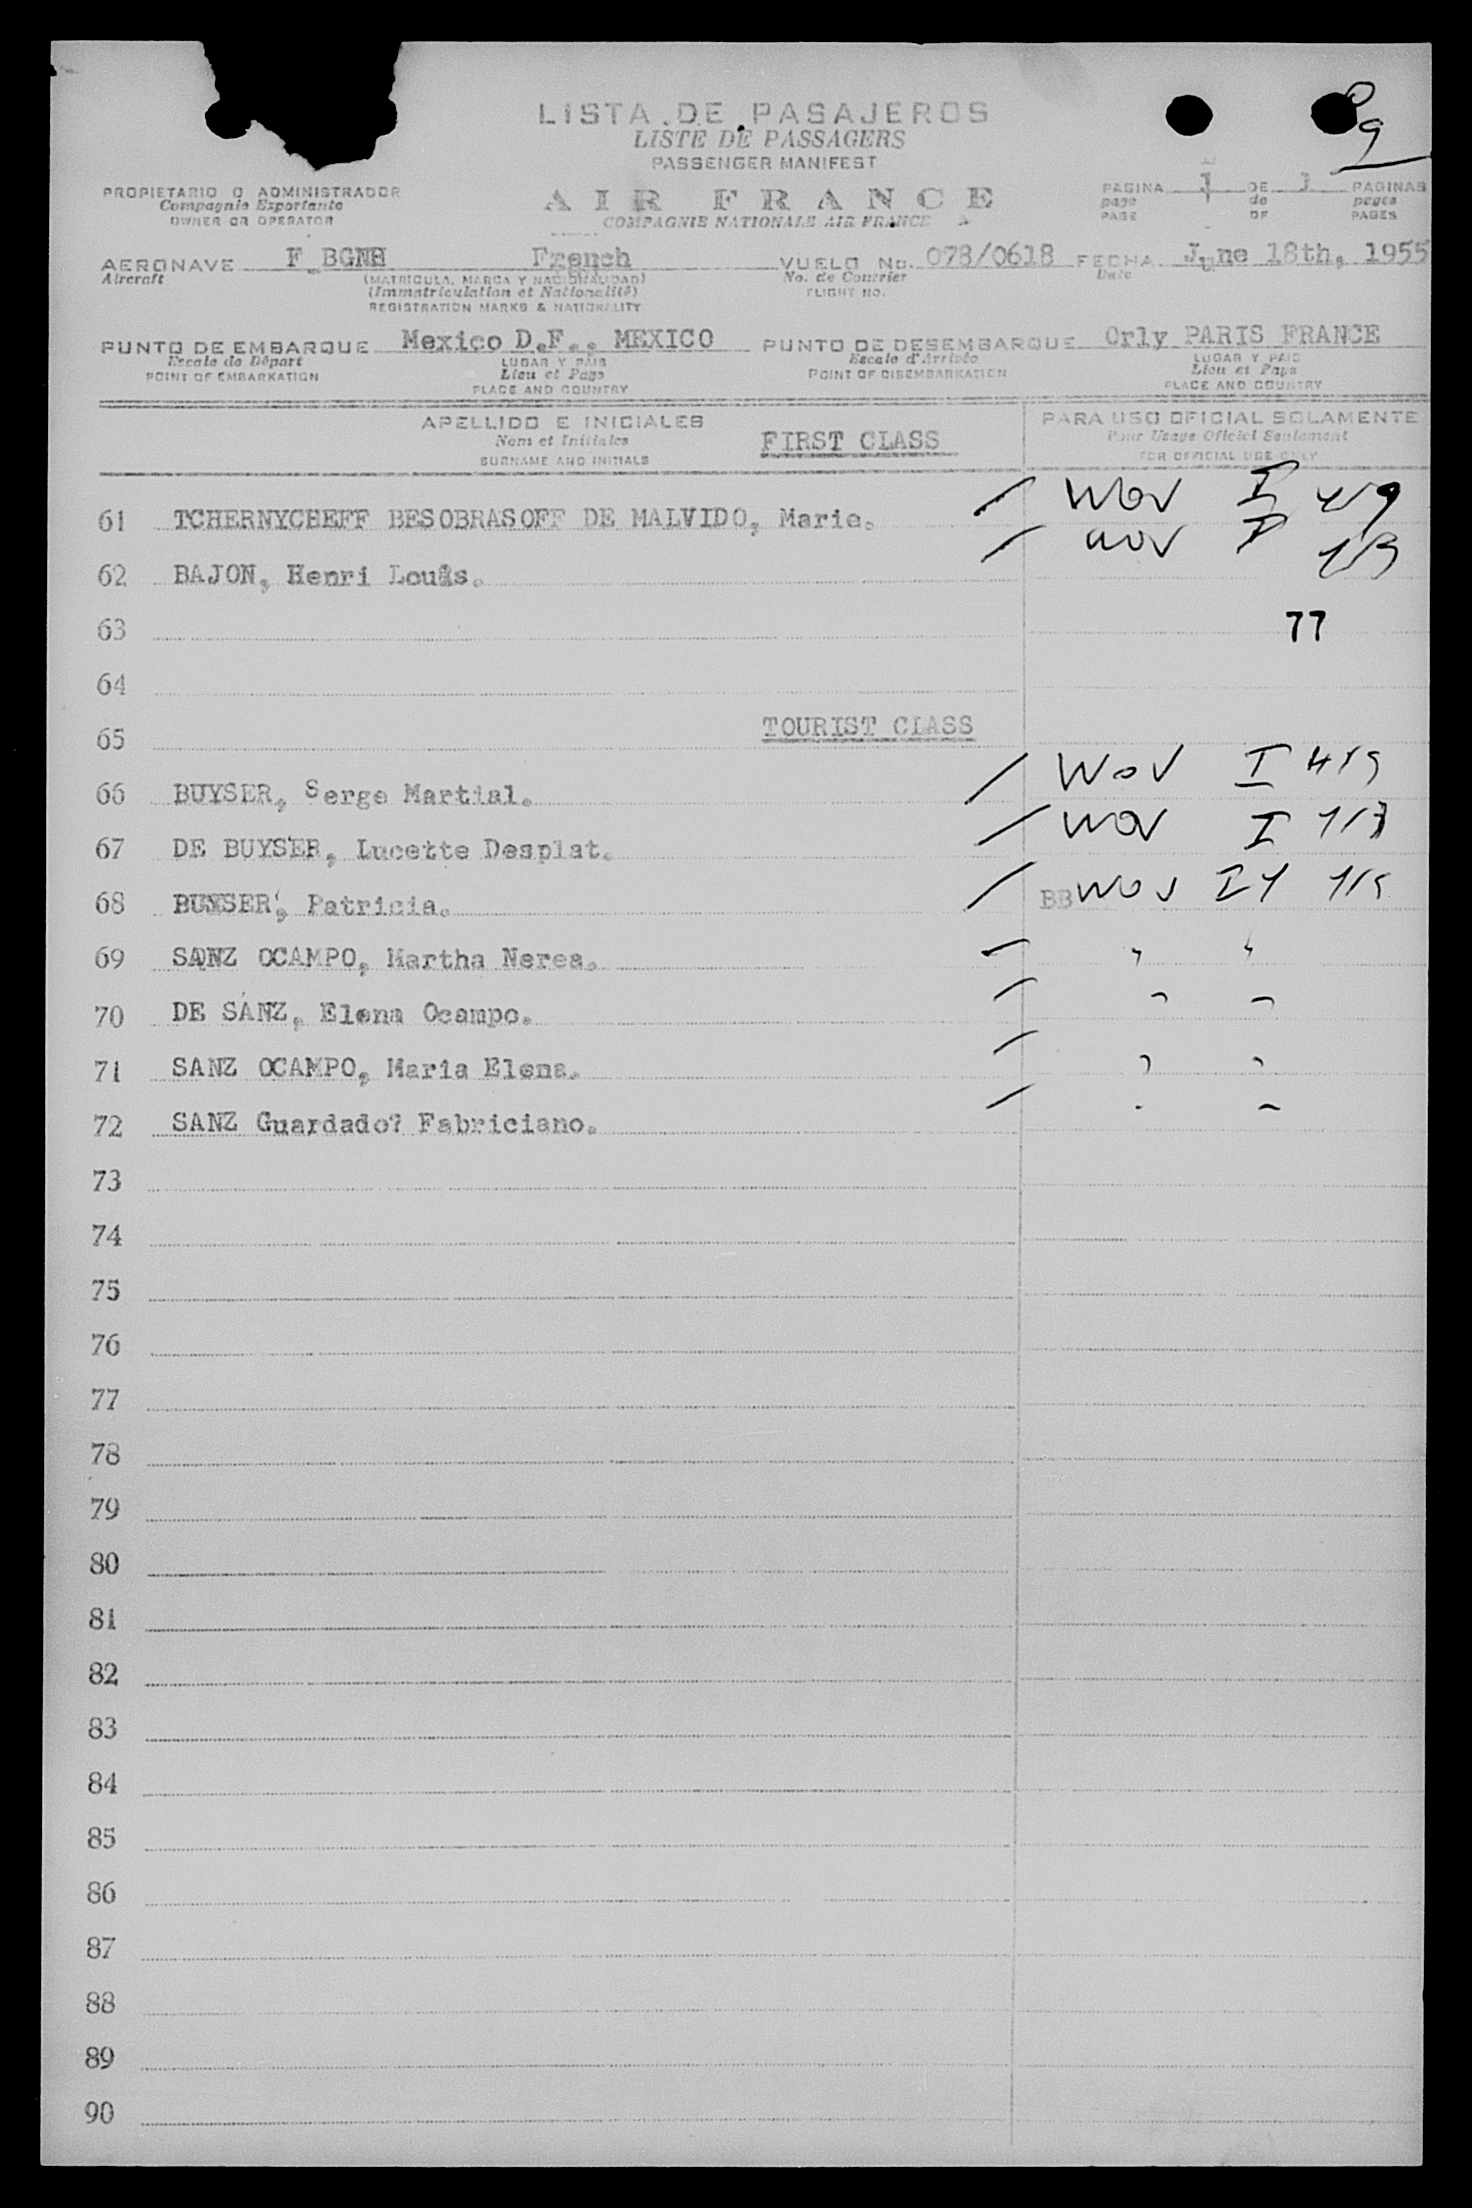 9
LISTA DE PASAJEROS
LISTE DE PASSAGERS
PASSENGER MANIFEST
PROPIETARIO O ADMINISTRADOR
Compagnie Exportante
OWNER OR OPERATOR
AIR FRANCE
COMPAGNIE NATIONALE AIR FRANCE
PAGINA 1 DE 1 PAGINAS
page de pages
PAGE OF PAGES
AERONAVE F BGNH French VUELO No. 078/0618 FECHA June 18th, 1955
Aircraft (MATRICULA, MARCA Y NACIONALIDAD) No. de Courrier Date
(Immatriculation et Nationalité) FLIGHT NO.
REGISTRATION MARKS & NATIONALITY
PUNTO DE EMBARQUE Mexico D.F., MEXICO PUNTO DE DESEMBARQUE Orly PARIS FRANCE
Escale de Départ LUGAR Y PAIS Escale d'Arrivée LUGAR Y PAIS
POINT OF EMBARKATION Lieu et Pays POINT OF DISEMBARKATION Lieu et Pays
PLACE AND COUNTRY PLACE AND COUNTRY
APELLIDO E INICIALES PARA USO OFICIAL SOLAMENTE
Nom et Initiales FIRST CLASS Pour Usage Officiel Seulement
SURNAME AND INITIALS FOR OFFICIAL USE ONLY
61 TCHERNYCHEFF BESOBRASOFF DE MALVIDO, Marie. WOV I
62 BAJON, Henri Louis. WOV I
63 77
64
65 TOURIST CLASS
66 BUYSER, Serge Martial. WOV I
67 DE BUYSER, Lucette Desplat. WOV I
68 BUYSER, Patricia. BB WOV
69 SANZ OCAMPO, Martha Nerea.
70 DE SANZ, Elena Ocampo.
71 SANZ OCAMPO, Maria Elena.
72 SANZ Guardado? Fabriciano.
73
74
75
76
77
78
79
80
81
82
83
84
85
86
87
88
89
90